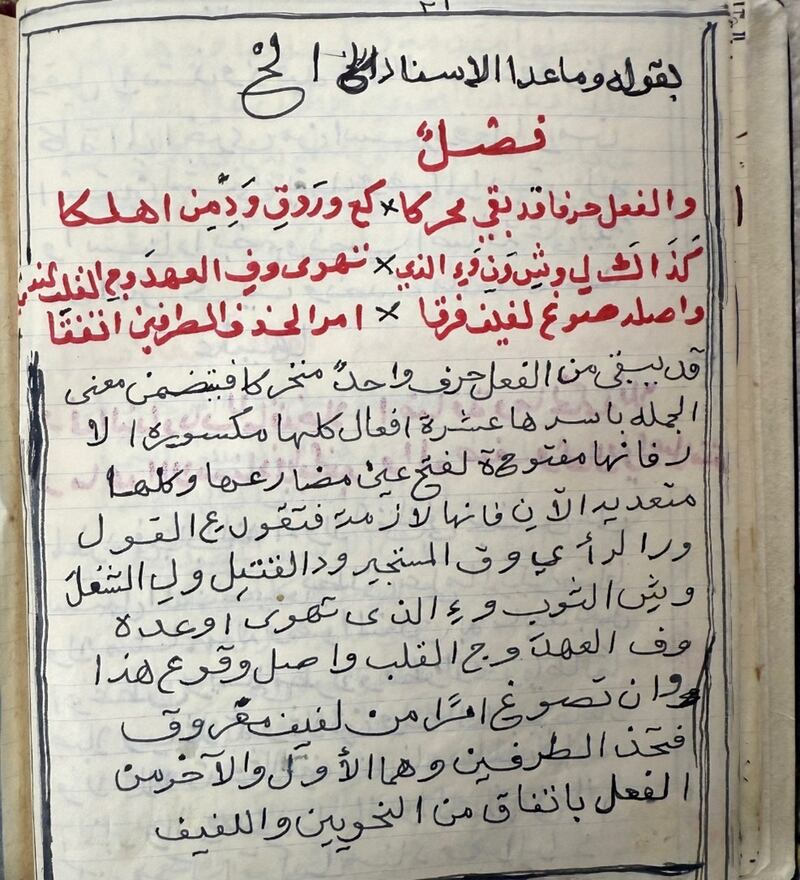 ٢١
بقوله وما عدا الاسناد الخ
فصلٌ
والفعل حرفا قد بقي محركا × كع ورَوقِ وَدِ من اهلكا
كَذَاكَ لِي وشِ وَنِ وَءِ الذي × تهوى وفِ العهدَ وجِ القلب
واصله صوغ لفيف فرقا × امر الحذف الطرفين اتفقا
قد يبقى من الفعل حرف واحدٌ متحركا فيتضمن معنى
الجمله باسرها عشرة افعال كلها مكسورة الا
ر فانها مفتوحة لفتح عين مضارعها وكلها
متعديه الا نِ فانها لازمة فتقول عِ القول
ور الرأي وقِ المستجير ودِ القتيل ولِ الشغلَ
وشِ الثوب وءِ الذى تهوى اوعده
وفِ العهدَ وجِ القلب واصل وقوع هذا
وان تصوغ امرًا من لفيف مفروق
فتحذ الطرفين وهما الأول والآخر من
الفعل باتفاق من النحويين واللفيف